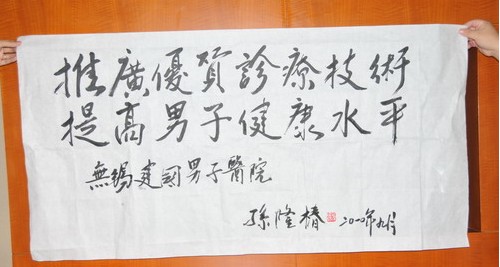 推廣優質診療技術
提高男子健康水平
無錫建國男子醫院
孫隆椿 二〇一〇年九月